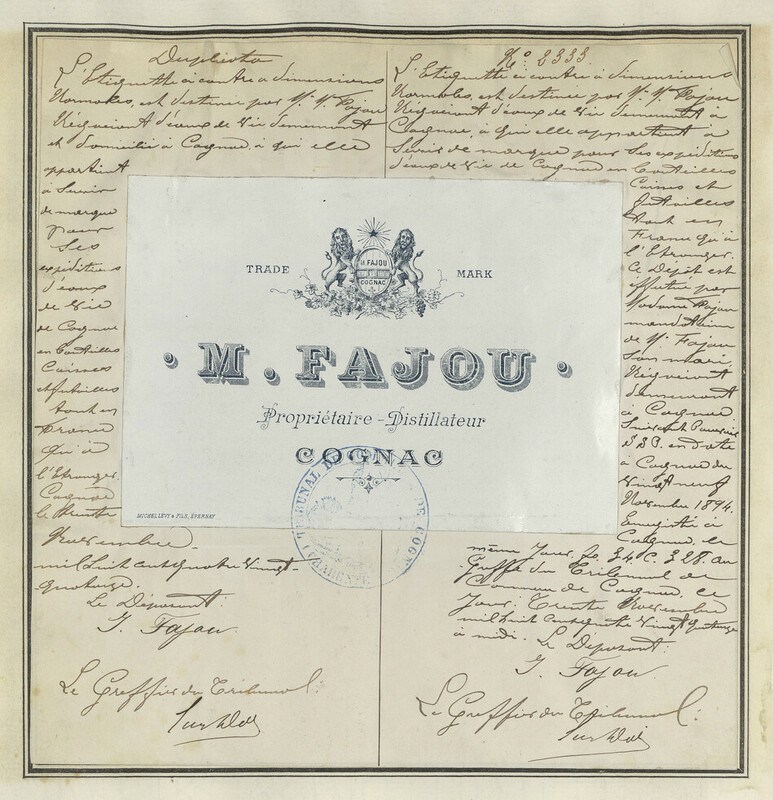 Duplicata
L'Etiquette ci contre à dimensions
Normales, est destinée par M. M. Fajou
Négociant d'eaux de Vie demeurant
et domicilié à Cognac, à qui elle
appartient
à Servir
de marque
pour
Ses
expéditions
d'eaux
de Vie
de Cognac
en Bouteilles
Caisses
et futailles
tant en
France
qu'à
l'Etranger.
Cognac
le trente
Novembre
mil huit cent quatre vingt-
quatorze.
Le Déposant:
J. Fajou
Le Greffier du Tribunal:
No. 2333.
L'Etiquette ci contre à dimensions
Normales, est destinée par M. M. Fajou
Négociant d'eaux de Vie demeurant à
Cognac, à qui elle appartient à
Servir de marque pour Ses expéditions
d'eaux de Vie de Cognac en Bouteilles
Caisses et
futailles
tant en
France qu'à
l'Etranger.
Ce Dépôt est
effectué par
Madame Fajou
mandataire
de M. Fajou
Son mari
Négociant
demeurant
à Cognac.
Suivant Pouvoir
S.S.P. en date
à Cognac du
Vingt neuf
Novembre 1894.
Enregistré à
Cognac, le
même Jour, fo. 34. C. 328. au
Greffe du Tribunal de
Commerce de Cognac, ce
Jour, Trente Novembre
mil huit cent quatre Vingt quatorze
à midi. Le Déposant:
J. Fajou.
Le Greffier du Tribunal:
TRADE MARK
M. FAJOU
COGNAC
M. FAJOU
Propriétaire-Distillateur
COGNAC
MICHEL LÉVY & FILS, ÉPERNAY
TRIBUNAL DE DE COGNAC
(CHARENTE)